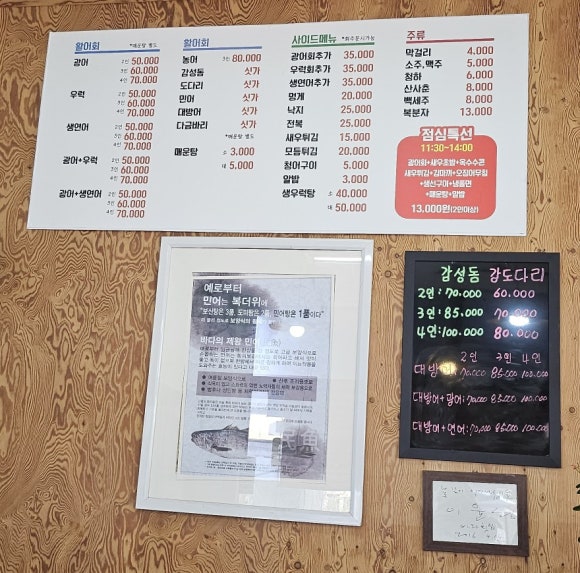 활어회 *매운탕 별도
광어 2인 50.000
3인 60.000
4인 70.000
우럭 2인 50.000
3인 60.000
4인 70.000
생연어 2인 50.000
3인 60.000
4인 70.000
광어+우럭 2인 50.000
3인 60.000
4인 70.000
광어+생연어 2인 50.000
3인 60.000
4인 70.000
활어회
농어 3인 80.000
감성돔 싯가
도다리 싯가
민어 싯가
대방어 싯가
다금바리 싯가
*매운탕 별도
매운탕 소 3.000
대 5.000
사이드메뉴 *회주문시가능
광어회추가 35.000
우럭회추가 35.000
생연어추가 35.000
멍게 20.000
낙지 25.000
전복 25.000
새우튀김 15.000
모듬튀김 20.000
청어구이 5.000
알밥 3.000
생우럭탕 소 40.000
대 50.000
주류
막걸리 4.000
소주,맥주 5.000
청하 6.000
산사춘 8.000
백세주 8.000
복분자 13.000
점심특선
11:30~14:00
광어회+새우초밥+옥수수콘
새우튀김+김마끼+오징어무침
+생선구이+냉쫄면
+매운탕+알밥
13.000원(2인이상)
예로부터
민어는 복더위에
"보신탕은 3품, 도미탕은 2품, 민어탕은 1품이다"
바다의 제왕 민어
감성돔 강도다리
2인:70.000 60.000
3인:85.000 70.000
4인:100.000 80.000
2인 3인 4인
대방어 70.000 85.000 100.000
대방어+광어:70.000 85.000 100.000
대방어+연어:70,000 85000 100.000